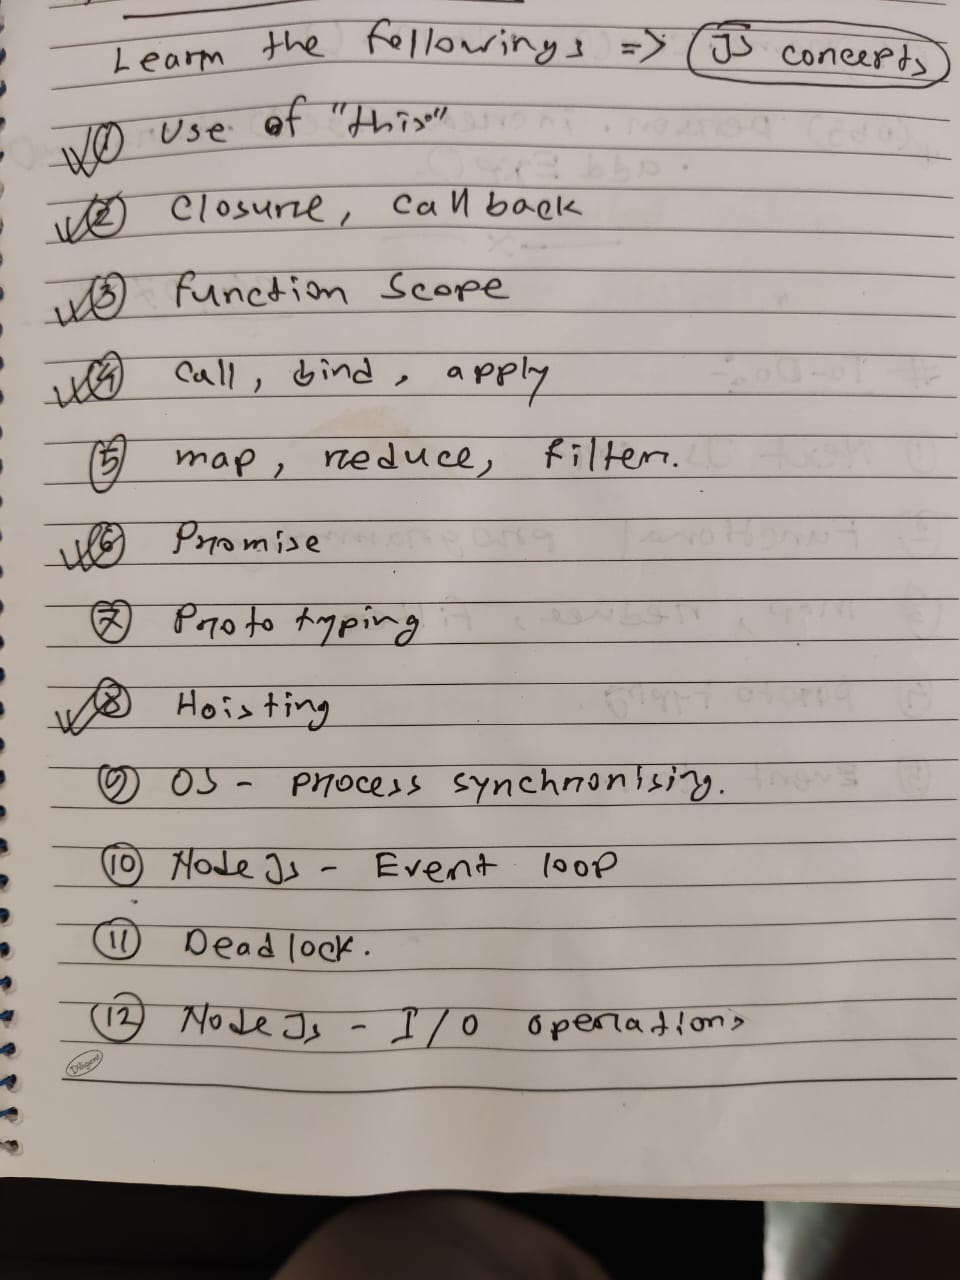 Learn the followings => JS concepts
1 Use of "this"
2 Closure, call back
3 Function Scope
4 Call, bind, apply
5 map, reduce, filter.
6 Promise
7 Proto typing
8 Hoisting
9 OS - process synchronising.
10 Node Js - Event loop
11 Dead lock.
12 Node Js - I/O operations
Diligent